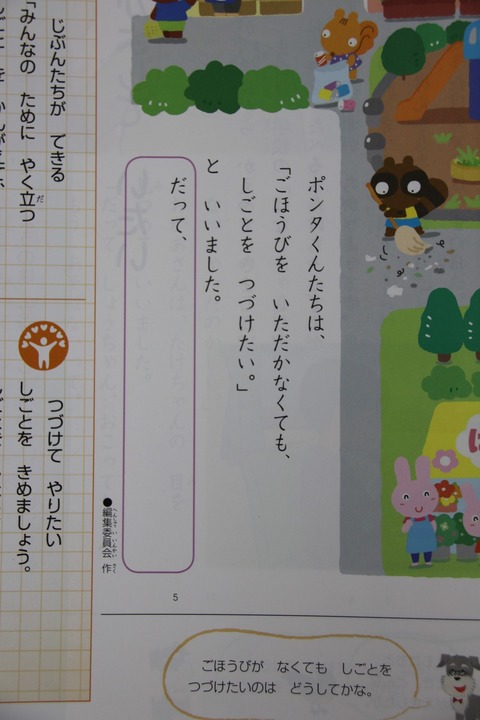 ポンタくんたちは、
「ごほうびを いただかなくても、
しごとを つづけたい。」
と いいました。
だって、
●編集委員会 作
へんしゅういいんかい さく
5
ごほうびが なくても しごとを
つづけたいのは どうしてかな。
じぶんたちが できる
「みんなの ために やく立つ
だ
つづけて やりたい
しごとを きめましょう。